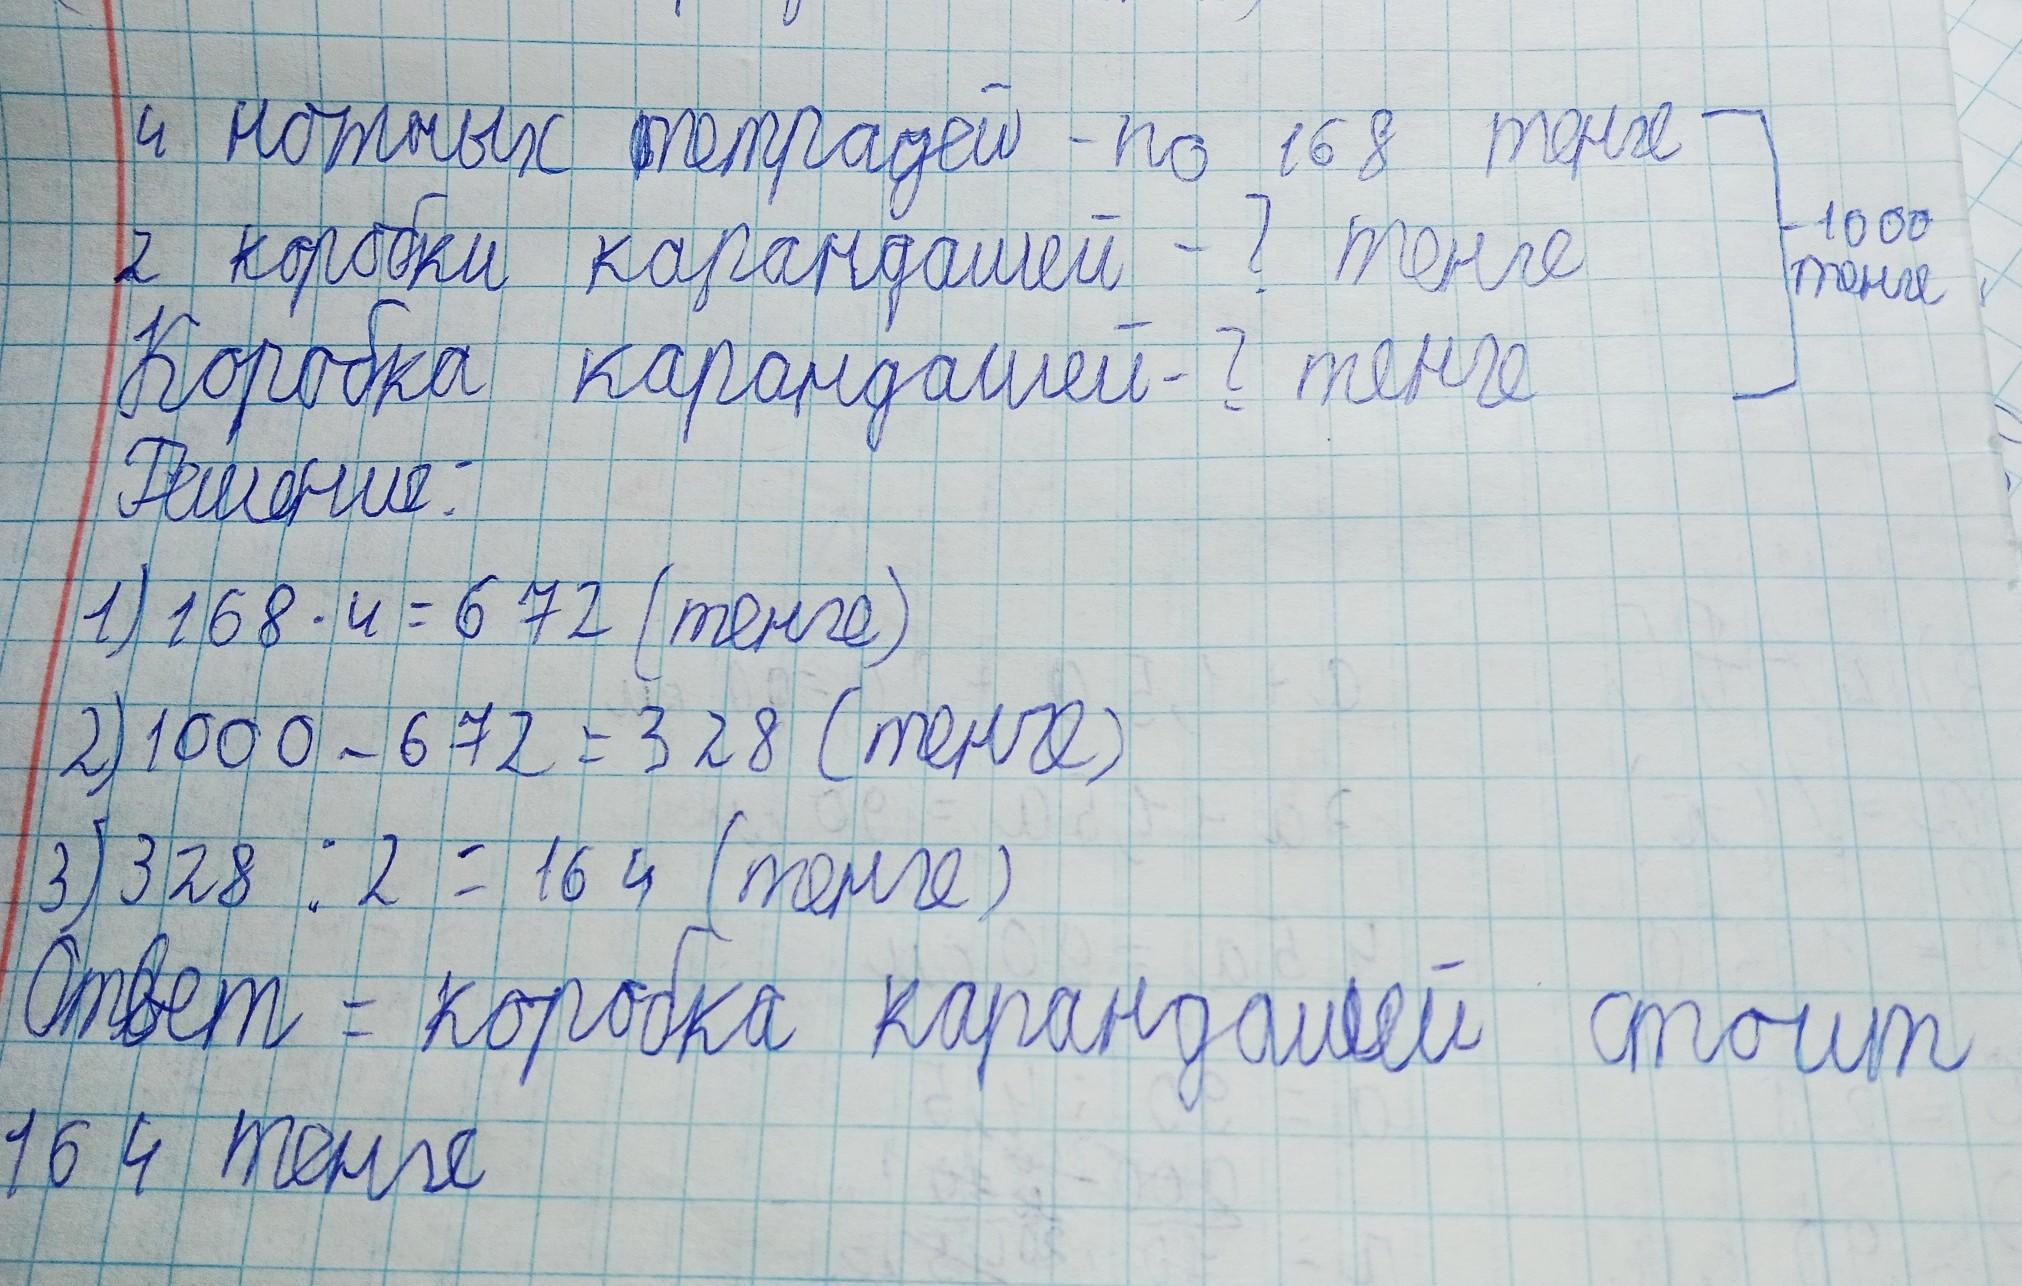 4 нотных тетрадей - по 168 тенге
2 коробки карандашей - ? тенге
- 1000
тенге
Коробка карандашей - ? тенге
Решение:
1) 168 · 4 = 672 (тенге)
2) 1000 - 672 = 328 (тенге)
3) 328 : 2 = 164 (тенге)
Ответ = коробка карандашей стоит
164 тенге